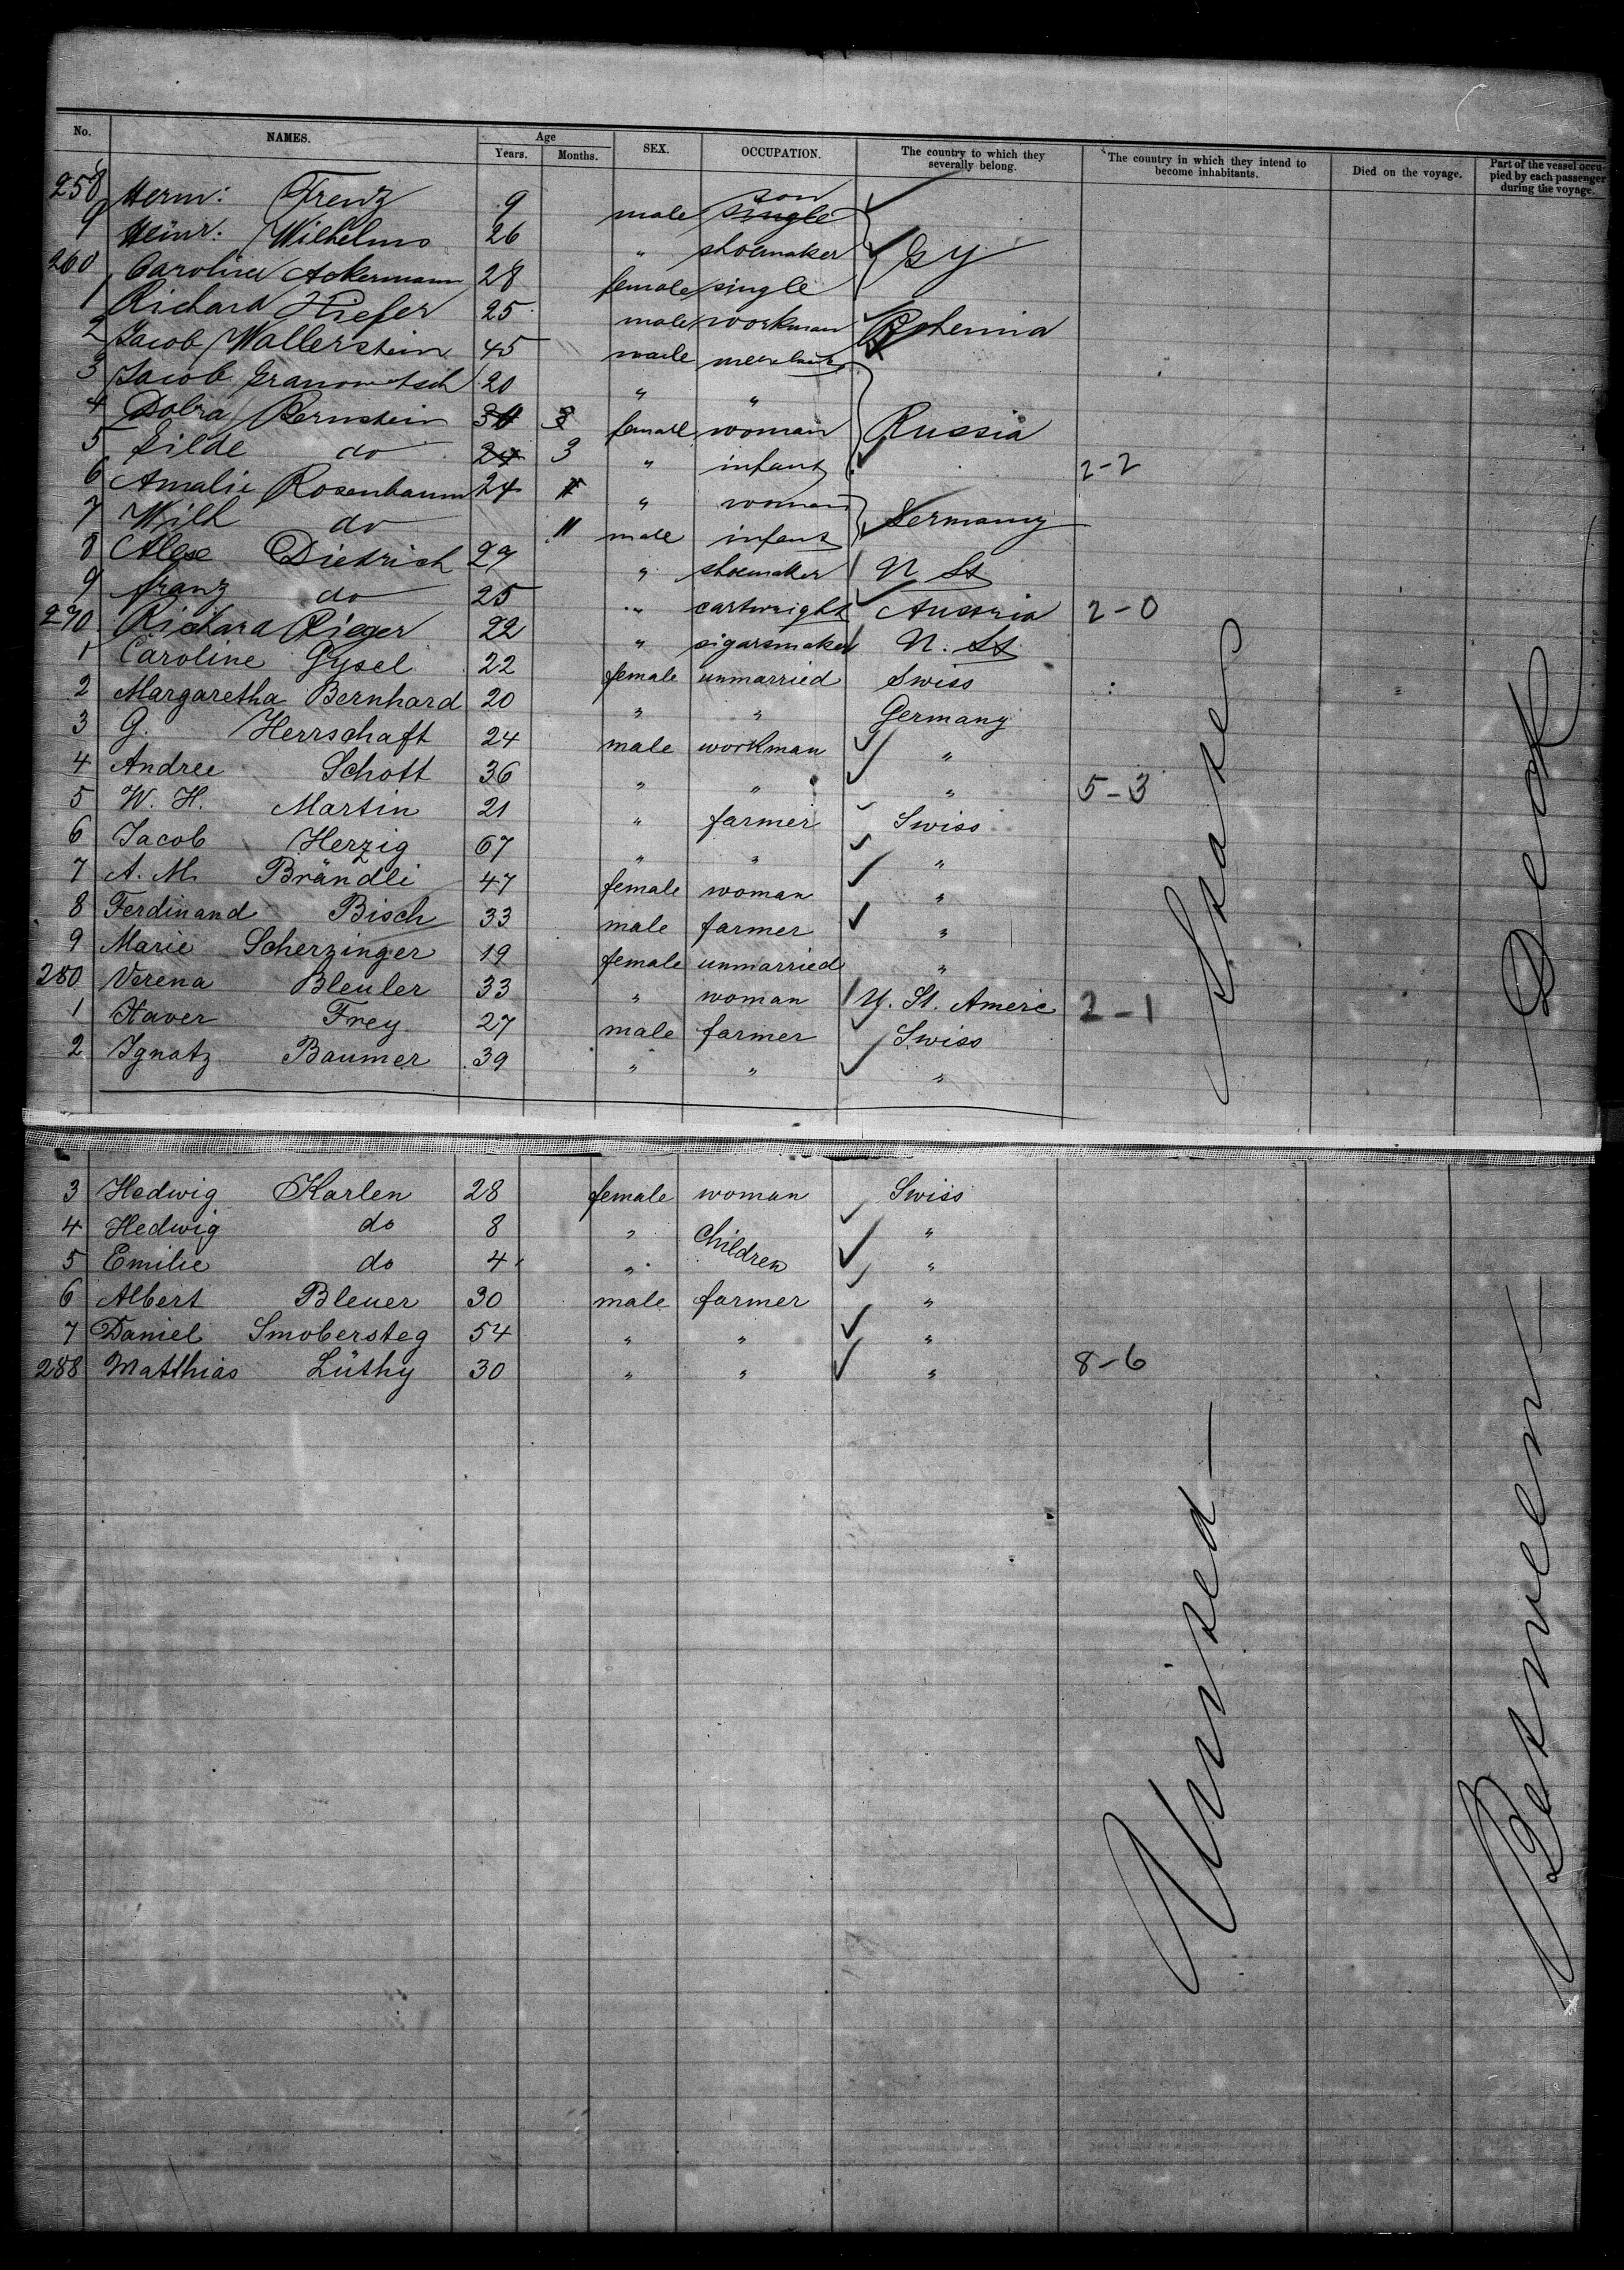 No. NAMES. Age Years. Months. SEX. OCCUPATION. The country to which they severally belong. The country in which they intend to become inhabitants. Died on the voyage. Part of the vessel occupied by each passenger during the voyage.
258 Herm: Frenz 9 male single son
9 Heinr. Wilhelms 26 " shoemaker Gy
260 Carolina Ackermann 28 female single
1 Richard 25 male workman Bohemia
2 Jacob Wallerstein 45 male
3 Jacob 20 " "
4 Dobra Bernstein female woman Russia
5 do 24 3 " infant 2-2
6 Amalie Rosenbaum 24 " woman
7 Wilh do 11 male infant Germany
8 Dietrich 27 " shoemaker U St
9 franz do 25 " cartwright Austria 2-0
270 Richard Rieger 22 " sigarsmaker U. St
1 Caroline Gysel 22 female unmarried Swiss
2 Margaretha Bernhard 20 " " Germany
3 G. Herrschaft 24 male workman "
4 Andree Schott 36 " " " 5-3
5 W. H. Martin 21 " farmer Swiss
6 Jacob Herzig 67 " " "
7 A. M. Brändli 47 female woman "
8 Ferdinand Bisch 33 male farmer "
9 Marie Scherzinger 19 female unmarried "
280 Verena Bleuler 33 " woman U. St. Americ 2-1
1 Xaver Frey 27 male farmer Swiss
2 Ignatz Baumer 39 " " "
3 Hedwig Karlen 28 female woman Swiss
4 Hedwig do 8 " Children "
5 Emilie do 4 " "
6 Albert Bleuer 30 male farmer "
7 Daniel Smobersteg 54 " " "
288 Matthias Lüthy 30 " " " 8-6
United States
Between Deck